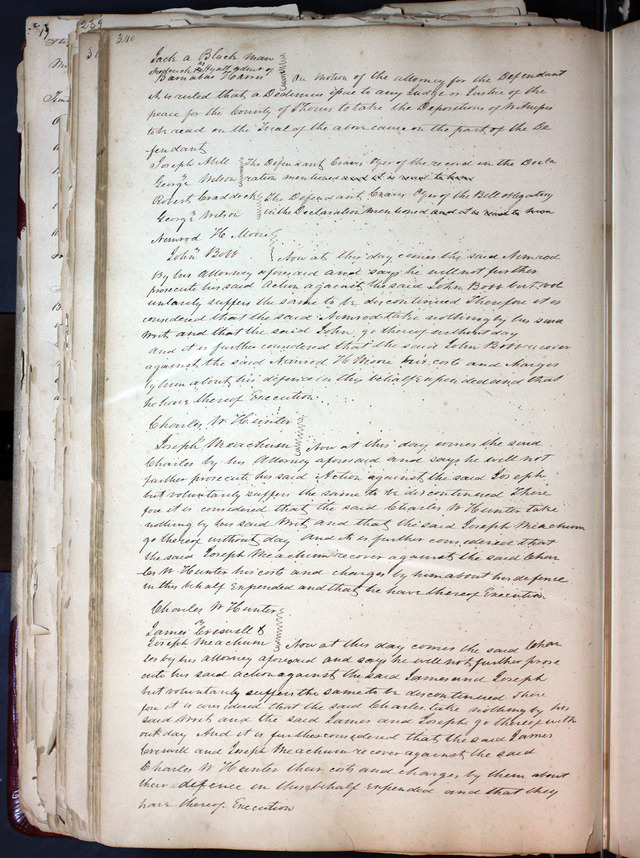 346
Jack a Black man
vs
Frederick Hyatt admr of
Barnabas Harris
On motion of the attorney for the Defendant
it is ruled that a Dedimus issue to any Judge or Justice of the
peace for the County of to take the Depositions of Witnesses
to be read on the Trial of the above cause on the part of the De
fendant
Joseph Hill
vs
George Wilson
The Defendant Craves Oyer of the record in the Decla
ration mentioned and it is read to him
Robert Craddock
vs
George Wilson
The Defendant Craves Oyer of the Bill obligatory
in the Declaration mentioned and it is read to him
Nimrod H. Moore
vs
John Bobb
Now at this day comes the said Nimrod
By his Attorney aforesaid and says he will not further
prosecute his said Action against the said John Bobb but vol
untarily suffers the same to be discontinued Therefore it is
considered that the said Nimrod take nothing by his said
Writ and that the said John go thereof without day
and it is further considered that the said John Bobb recover
against the said Nimrod H Moore his costs and charges
by him about his defence in this behalf expended and that
he have thereof Execution.
Charles W Hunter
vs
Joseph Meachum
Now at this day comes the said
Charles by his Attorney aforesaid and says he will not
further prosecute his said Action against the said Joseph
but voluntarily suffers the same to be discontinued There
fore it is considered that the said Charles W Hunter take
nothing by his said Writ and that the said Joseph Meachum
go thereof without day and it is further considered that
the said Joseph Meachum recover against the said Char
les W Hunter his costs and charges by him about his defence
in this behalf Expended and that he have thereof Execution
Charles W Hunter
vs
James Criswell &
Joseph Meachum
Now at this day comes the said Char
les by his attorney aforesaid and says he will not further prose
cute his said action against the said James and Joseph
but voluntarily suffers the same to be discontinued There
fore it is considered that the said Charles take nothing by his
said Writ and the said James and Joseph go thereof with
out day And it is further considered that the said James
Criswell and Joseph Meachum recover against the said
Charles W Hunter their costs and charges by them about
their defence in this behalf Expended and that they
have thereof Execution